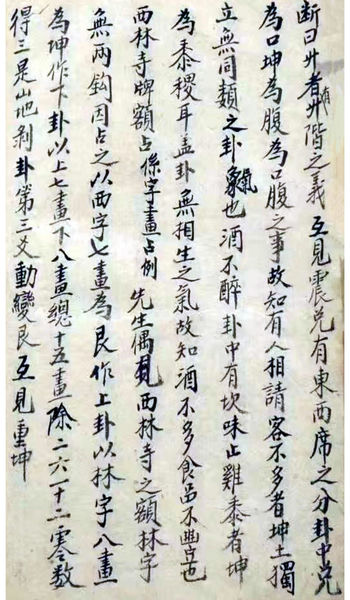 断曰升者有升階之義互見震兑有東西席之分卦中兑
為口坤為腹為口腹之事故知有人相請客不多者坤土獨
立無同類之卦氣也酒不醉卦中有坎味止雞黍者坤
為黍稷耳盖卦無相生之氣故知酒不多食品不豐也
西林寺牌額占係字畫占例 先生偶見西林寺之額林字
無兩鈎因占之以西字七畫為艮作上卦以林字八畫
為坤作下卦以上七畫下八畫總十五畫除二六一十二零数
得三是山地剥卦第三爻動變艮互見重坤